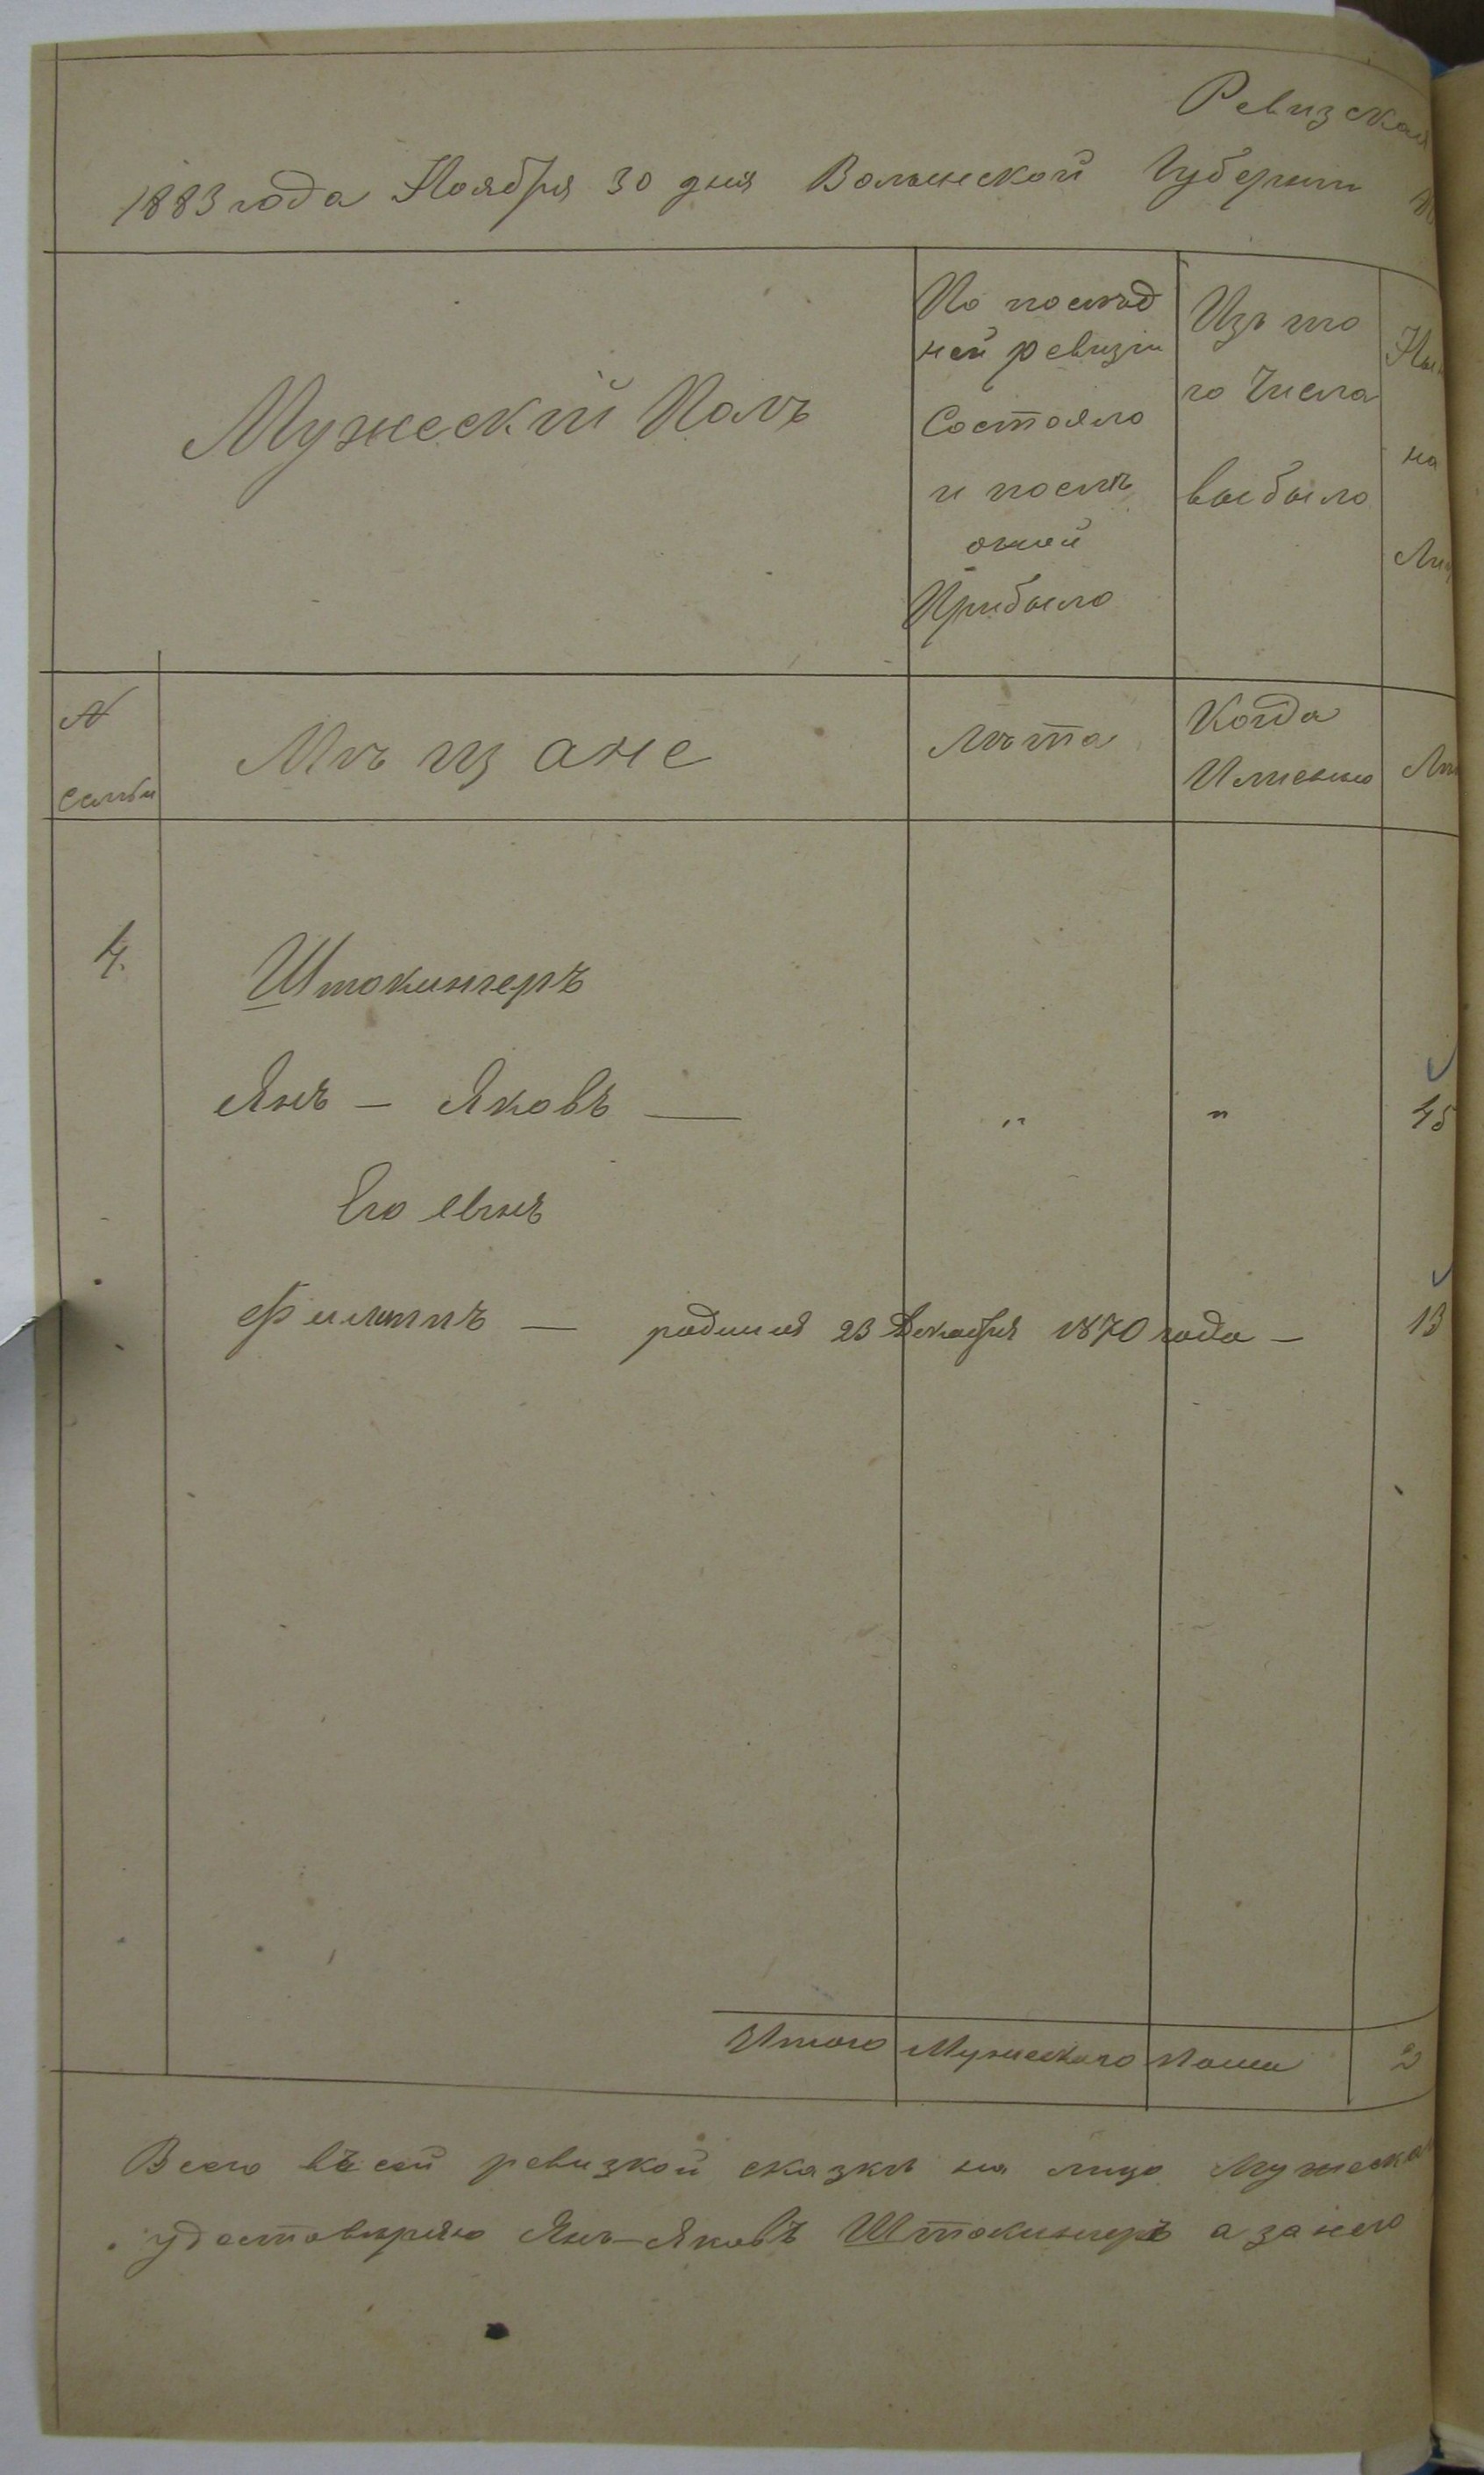 Ревизская
1883 года Ноября 30 дня Волынской Губернии
Мужеский Полъ
По послѣд
ней ревизіи
Состояло
и послѣ
оной
Прибыло
Изъ то
го Числа
выбыло
на
№
семьи
Мѣщане
Лѣта
Когда
Именно
4.
Штокингеръ
Янъ — Яковъ — „ „ 45
Его сынъ
Филиппъ — родился 23 Декабря 1870 года — 13
Итого Мужескаго Пола 2
Всего въ сей ревизкой сказкѣ на лицо Мужеска
удостовѣряю Янъ-Яковъ Штокингеръ а за него